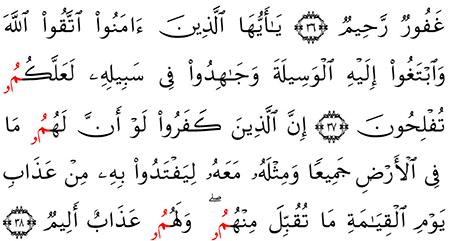 غَفُورٌ رَّحِيمٌ ٣٦ يَـٰٓأَيُّهَا ٱلَّذِينَ ءَامَنُوا۟ ٱتَّقُوا۟ ٱللَّهَ
وَٱبْتَغُوٓا۟ إِلَيْهِ ٱلْوَسِيلَةَ وَجَـٰهِدُوا۟ فِى سَبِيلِهِۦ لَعَلَّكُمُۥ
تُفْلِحُونَ ٣٧ إِنَّ ٱلَّذِينَ كَفَرُوا۟ لَوْ أَنَّ لَهُمُۥ مَا
فِى ٱلْأَرْضِ جَمِيعًا وَمِثْلَهُۥ مَعَهُۥ لِيَفْتَدُوا۟ بِهِۦ مِنْ عَذَابِ
يَوْمِ ٱلْقِيَـٰمَةِ مَا تُقُبِّلَ مِنْهُمُۥ ۖ وَلَهُمُۥ عَذَابٌ أَلِيمٌ ٣٨